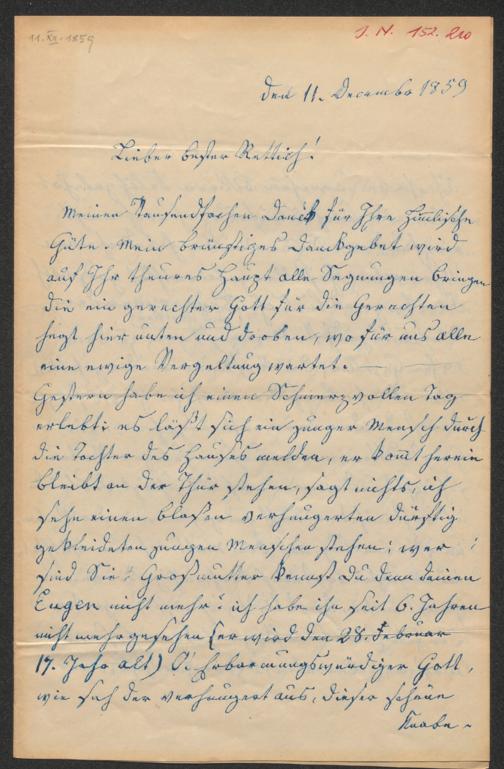 11. XII. 1859
J. N. 152.210
den 11. Decembr 1859
Lieber bester Rettich!
Meinen Tausendfachen Danck für Ihre Himlische
Güte. Mein brünstiges Danckgebet wird
auf Ihr theures Haupt alle Segnungen bringen
die ein gerechter Gott für die Gerechten
hegt hier unten und droben, wo für uns alle
eine ewige Vergeltung wartet. —
Gestern habe ich einen Schmerzvollen Tag
erlebt: es läßt sich ein junger Mensch durch
die Tochter des Hauses melden, er komt herein
bleibt an der Thür stehen, sagt nichts, ich
sehe einen blaßen verhungerten dürftig
gekleideten jungen Menschen stehen; wer
sind Sie? Großmutter kennst Du denn deinen
Eugen nicht mehr? ich habe ihn seit 6. Jahren
nicht mehr gesehen (er wird den 28. Februar
17. Jahr alt) O! Erbarmungswürdiger Gott,
wie sah der verhungert aus, dieser schöne
Knabe.